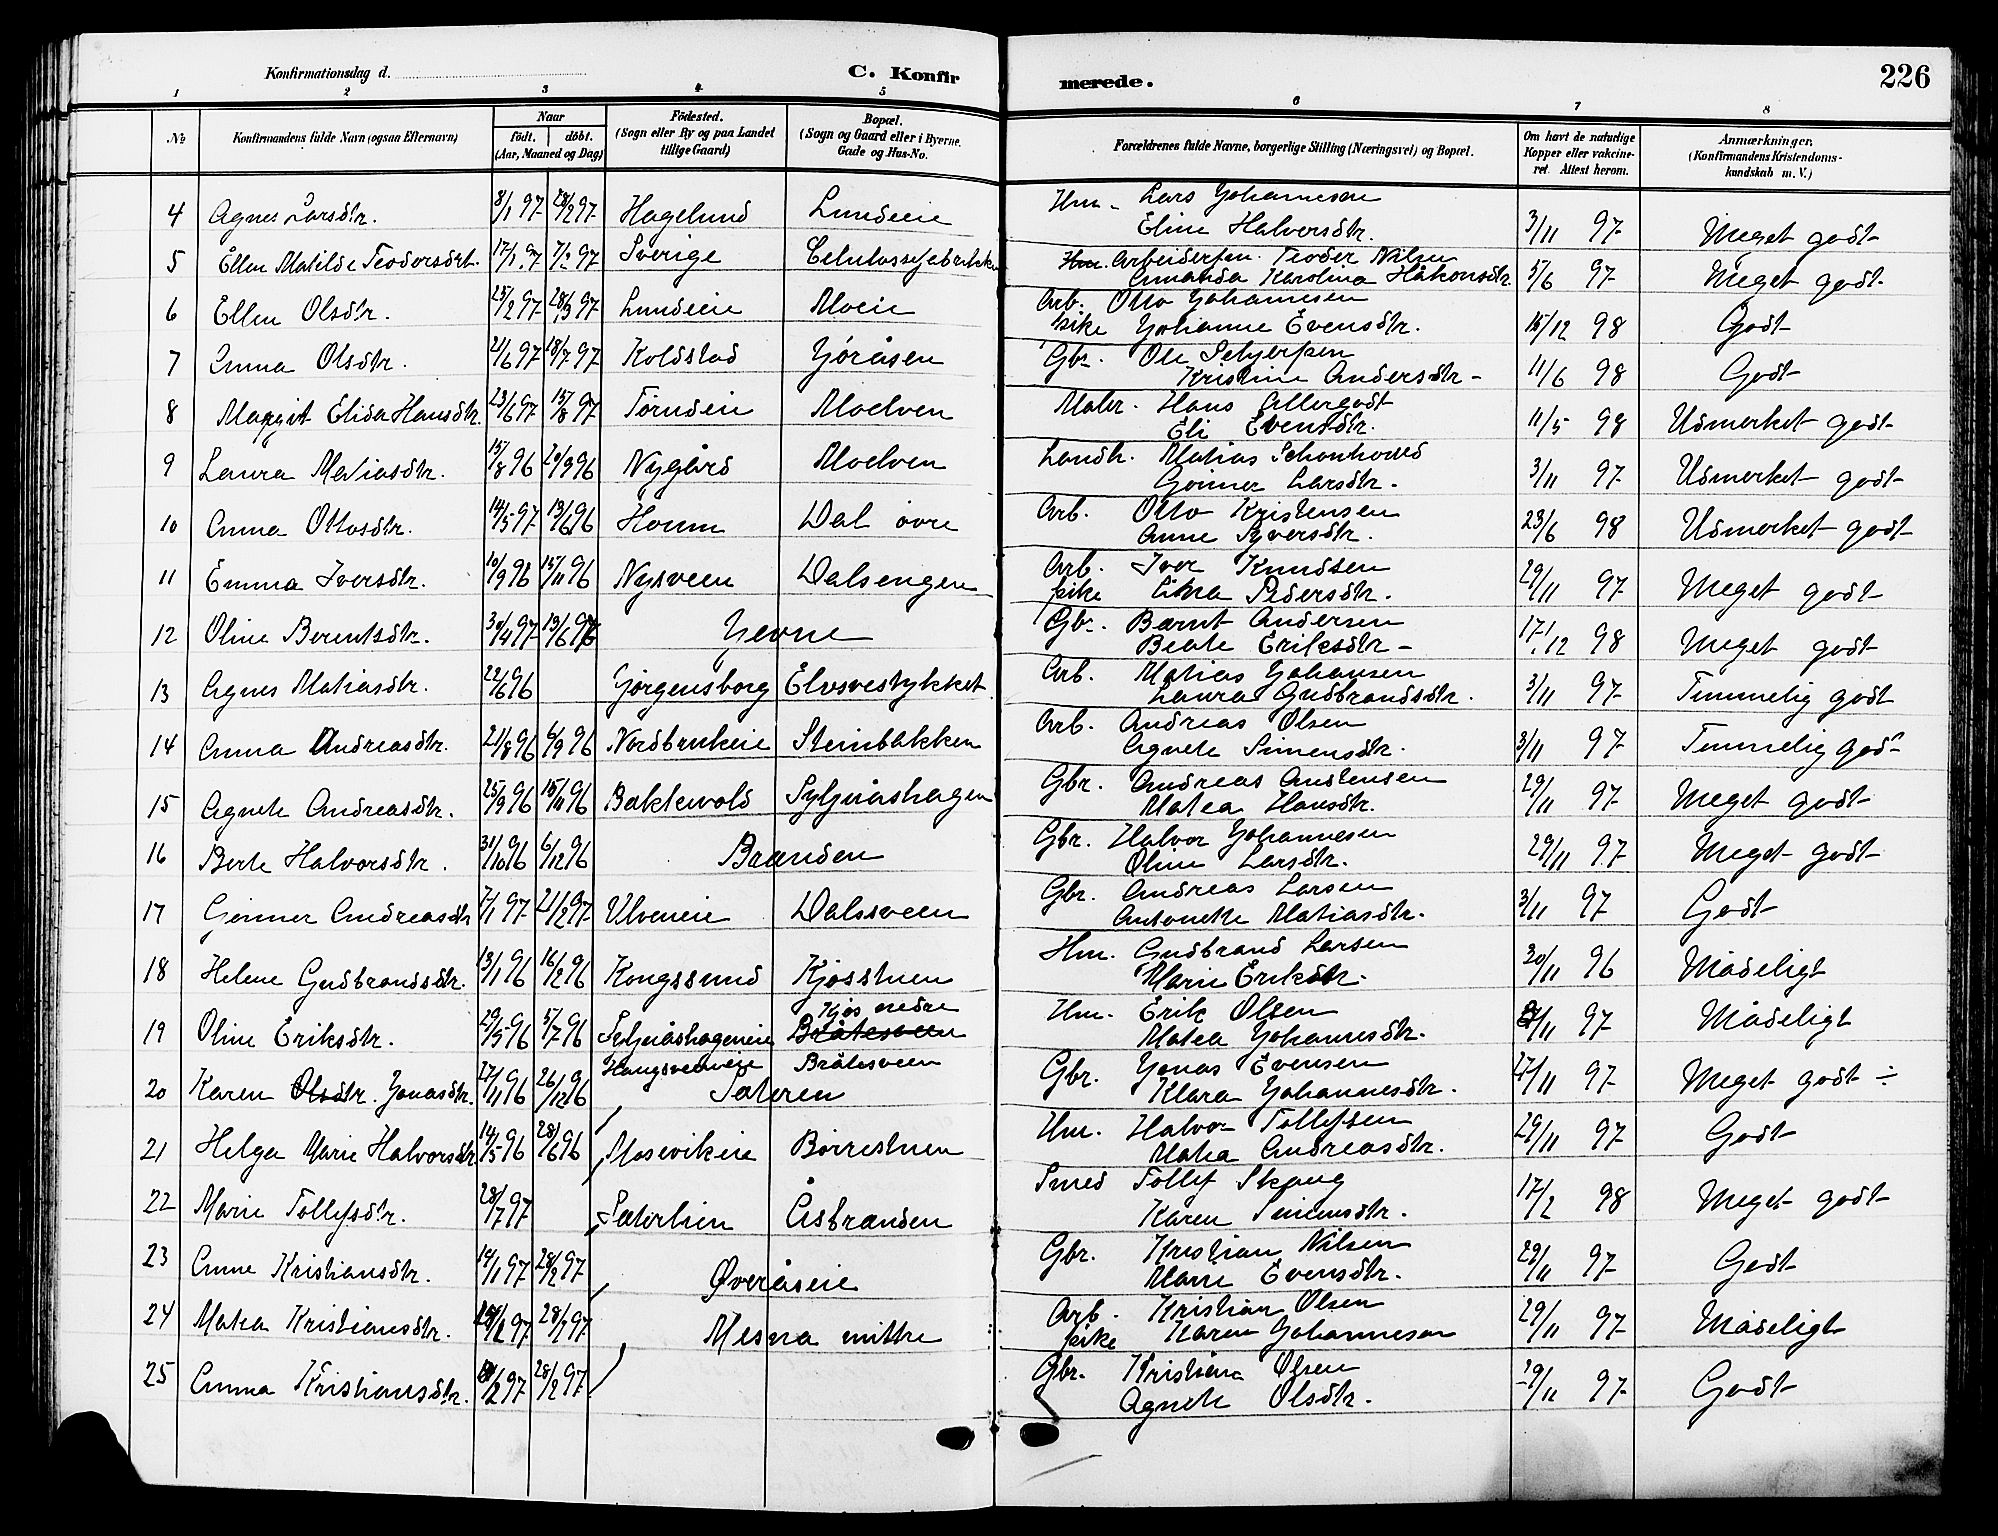 Konfirmationsdag d.
C. Konfirmerede.
226
1 2 3 4 5 6 7 8
№ Konfirmandens fulde Navn (ogsaa Efternavn) Naar født. døbt. (Aar, Maaned og Dag) Fødested. (Sogn eller By og paa Landet tillige Gaard) Bopæl. (Sogn og Gaard eller i Byerne, Gade og Hus-No. Forældrenes fulde Navne, borgerlige Stilling (Næringsvei) og Bopæl. Om havt de naturlige Kopper eller vakcineret. Attest herom. Anmærkninger. (Konfirmandens Kristendomskundskab m. V.)
4 Agnes Larsdtr. 8/1 97 28/2 97 Hagelund Lundeie Hm. Lars Johannesen
Eline Halvorsdtr. 3/11 97 Meget godt
5 Ellen Matilde Teodorsdtr. 17/1 97 7/2 97 Sverige Celulossefabrikken Hm. Arbeiderfm. Teodor Nilsen
Amanda Karolina Håkonsdtr 5/6 97 Meget godt
6 Ellen Olsdtr. 25/2 97 28/3 97 Lundeie Moeie Arb. Otto Johannesen
pike Johanne Evensdtr. 15/12 98 Godt
7 Anna Olsdtr. 21/6 97 18/7 97 Koldstad Gjøråsen Gbr. Ole Seljerfsen
Kristine Andersdtr 11/6 98 Godt
8 Margit Elida Hansdtr. 23/6 97 15/8 97 Torudeie Moelven Maler. Hans Allergodt
Eli Evensdtr. 11/5 98 Udmerket godt
9 Laura Matiasdtr. 15/8 96 20/9 96 Nygård Moelven Landh. Matias Schonhowd
Gonner Larsdtr. 3/11 97 Udmerket godt
10 Anna Ottosdtr. 14/5 97 13/6 96 Houm Dal øvre Arb. Otto Kristensen
Anne Syversdtr. 23/6 98 Udmerket godt
11 Emma Iversdtr. 10/9 96 15/11 96 Nysveen Dalsengen Arb. Iver Knudsen
pike Lina Pedersdtr. 29/11 97 Meget godt
12 Oline Berentsdtr. 30/4 97 13/6 97 Jevne Gbr. Bernt Andersen
Beate Eriksdtr 17/12 98 Meget godt
13 Agnes Matiasdtr. 22/6 96 Jørgensborg Elvsvestykket Arb. Matias Johansen
Laura Gudbrandsdtr. 3/11 97 Temmelig godt
14 Anna Andreasdtr. 21/8 96 6/9 96 Nordbrukeie Stenbakken Arb. Andreas Olsen
Agnete Simensdtr. 3/11 97 Temmelig godt
15 Agnete Andreasdtr. 25/9 96 15/11 96 Bakkevold Syljuåshagen Gbr. Andreas Austensen
Matea Hansdtr. 29/11 97 Meget godt
16 Berte Halvorsdtr. 31/10 96 6/12 96 Brænden Gbr. Halvor Johannesen
Oline Larsdtr. 29/11 97 Meget godt
17 Gonner Andreasdtr 7/1 97 21/2 97 Ulveneie Dalssveen Gbr. Andreas Larsen
Antonette Matiasdtr. 3/11 97 Godt
18 Helene Gudbrandsdtr. 13/1 96 16/2 96 Kongssund Kjosstuen Hm. Gudbrand Larsen
Marie Eriksdtr. 30/11 96 Mådeligt
19 Oline Eriksdtr. 29/5 96 5/7 96 Syljuåshageneie Kjos nedre Bråtesveen Hm. Erik Olsen
Matea Johannesdtr. 97 Mådeligt
Bråtesveen
20 Karen Olsdtr. Jonasdtr. 27/11 96 26/12 96 Sæteren Gbr. Jonas Evensen
Klara Johannesdtr. 97 Meget godt ÷
21 Helga Marie Halvorsdtr 14/5 96 28/6 96 Mosevikeie Børrestuen Hm. Halvor Tollefsen
Matea Andreasdtr. 29/11 97 Godt
22 Marie Tollefsdtr. 28/7 97 Sæterlien Åsbrænden Smed Tollef Skaug
Karen Simensdtr. 17/2 98 Meget godt
23 Anne Kristiansdtr. 14/1 97 28/2 97 Øveråseie Gbr. Kristian Nilsen
Marie Evensdtr. 29/11 97 Godt
24 Matea Kristiansdtr. 97 28/2 97 Mesna mittre Arb. Kristian Olsen
pike Karen Johannesen 29/11 97 Mådeligt
25 Emma Kristiansdtr. 97 28/2 97 Gbr. Kristian Olsen
Agnete Olsdtr. 29/11 97 Godt